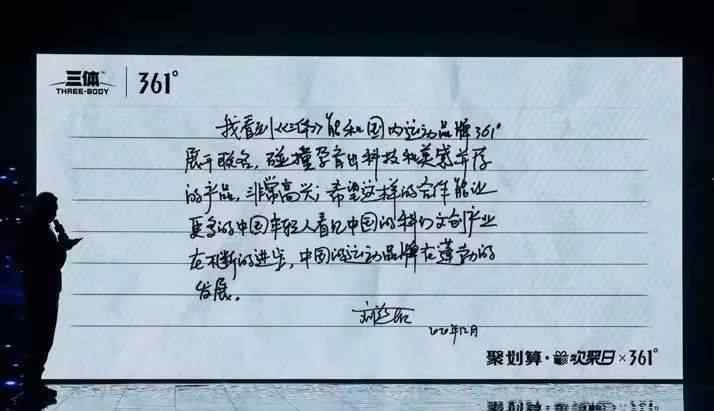 三体 THREE-BODY | 361°
我看到《三体》能和国内运动品牌361°
展开联名，碰撞孕育出科技和美感并存
的产品，非常高兴；希望这样的合作能让
更多的中国年轻人看见中国的科幻文创产业
在不断的进步，中国的运动品牌在蓬勃的
发展。
刘慈欣
2020年12月
聚划算·欢聚日×361°